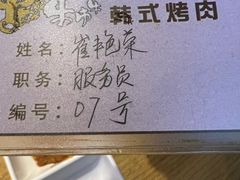 韩式烤肉
姓名：崔艳荣
职务：服务员
编号：07号